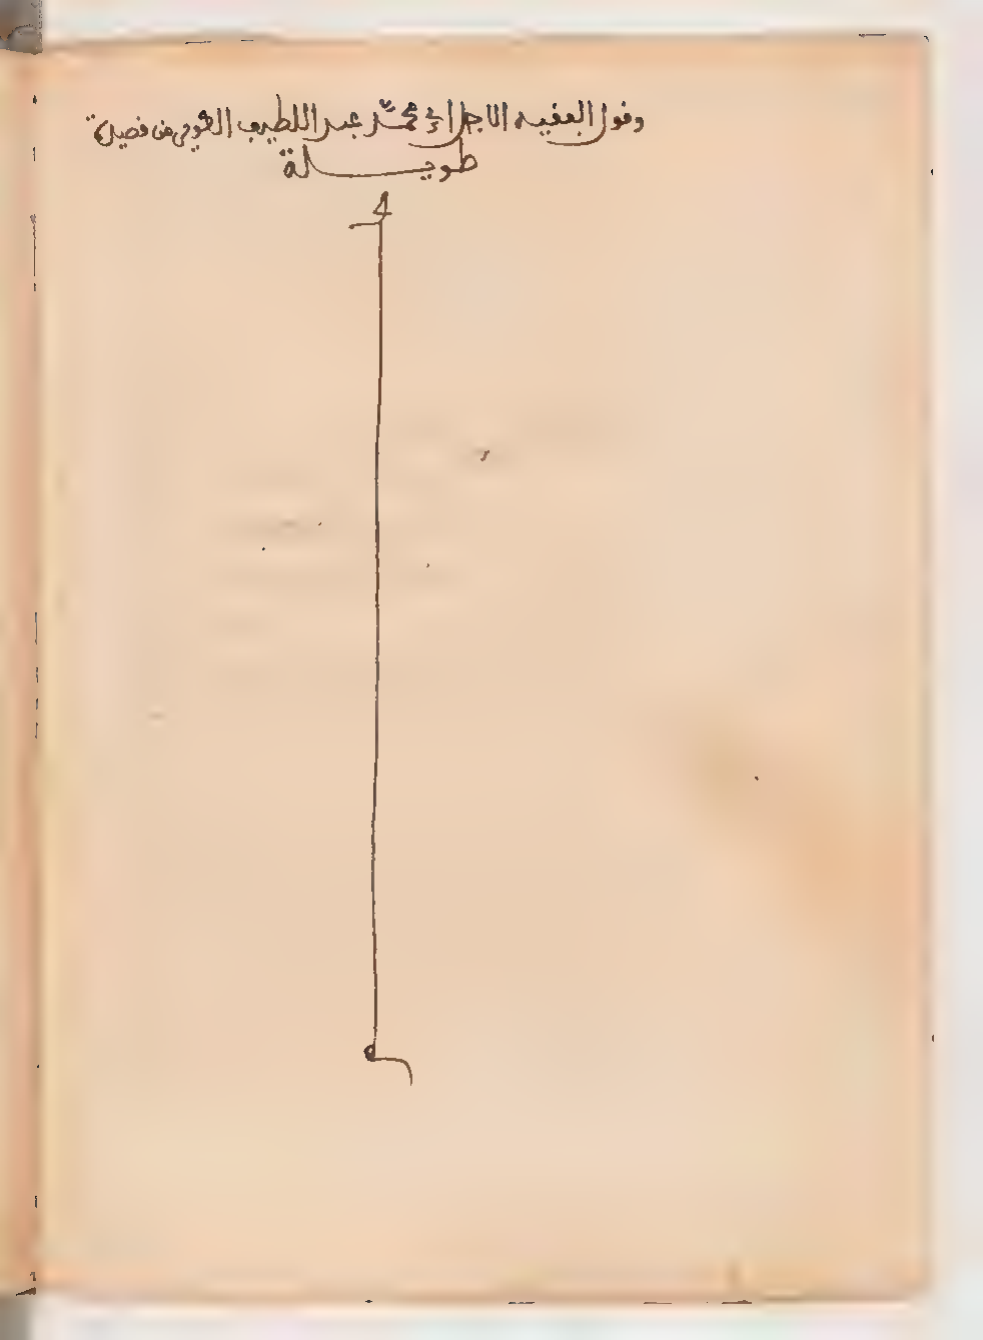 وقول الفقيه الاجل ابي محمد عبد اللطيف من قصيدة
طويلة